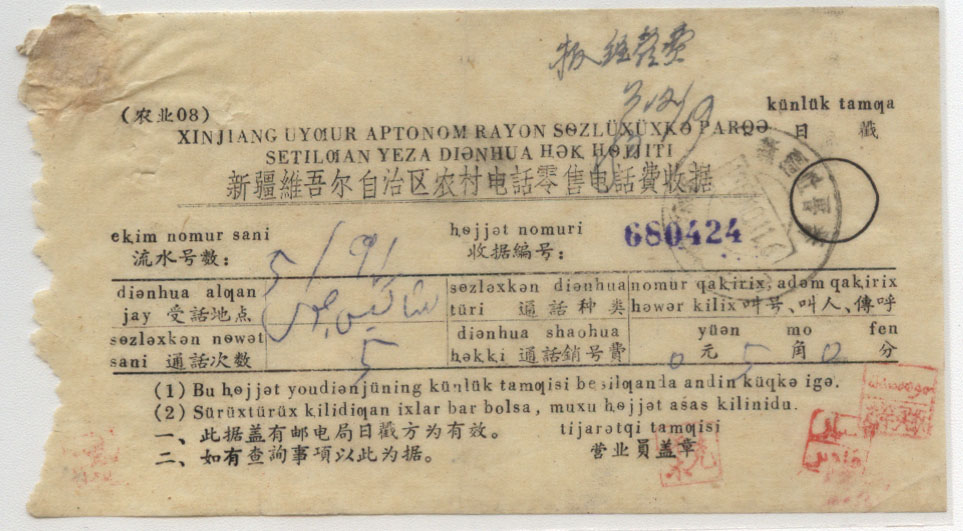 (农业08)
künlük tamƣa
日 戳
XINJIANG UYƢUR APTONOM RAYON SɵZLÜXÜXKƏ PARQƏ
SETILƢAN YEZA DIƏNHUA HƏK HɵJJITI
新疆維吾尔自治区农村电話零售电話費收据
ekim nomur sani
流水号数:
5/91
həjjət nomuri
收据编号:
680424
diənhua alƣan
jay 受話地点
sɵzləxkən diənhua
türi 通話种类
nomur qakirix, adəm qakirix
həwər kilix 叫号、叫人、傳呼
sɵzləxkən nɵwət
sani 通話次数
5
diənhua shaohua
həkki 通話銷号費
yüən mo fen
0 元 5 角 0 分
(1) Bu hɵjjət youdiənjüning künlük tamƣisi besilƣanda andin küqkə igə.
(2) Sürüxtürüx kilidiƣan ixlar bar bolsa, muxu hɵjjət asas kilinidu.
一、此据盖有邮电局日戳方为有效。
二、如有查詢事項以此为据。
tijarətqi tamƣisi
营业員盖章